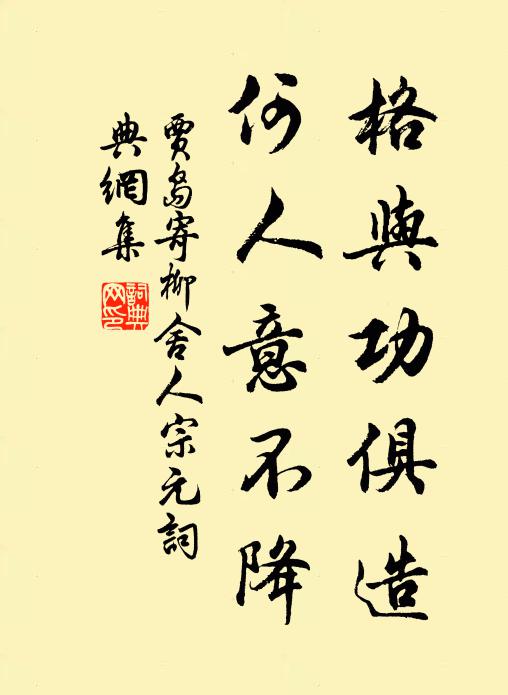 格與功俱造
何人意不降
賈島寄柳舍人宗元詞
典網集
詞典
网印